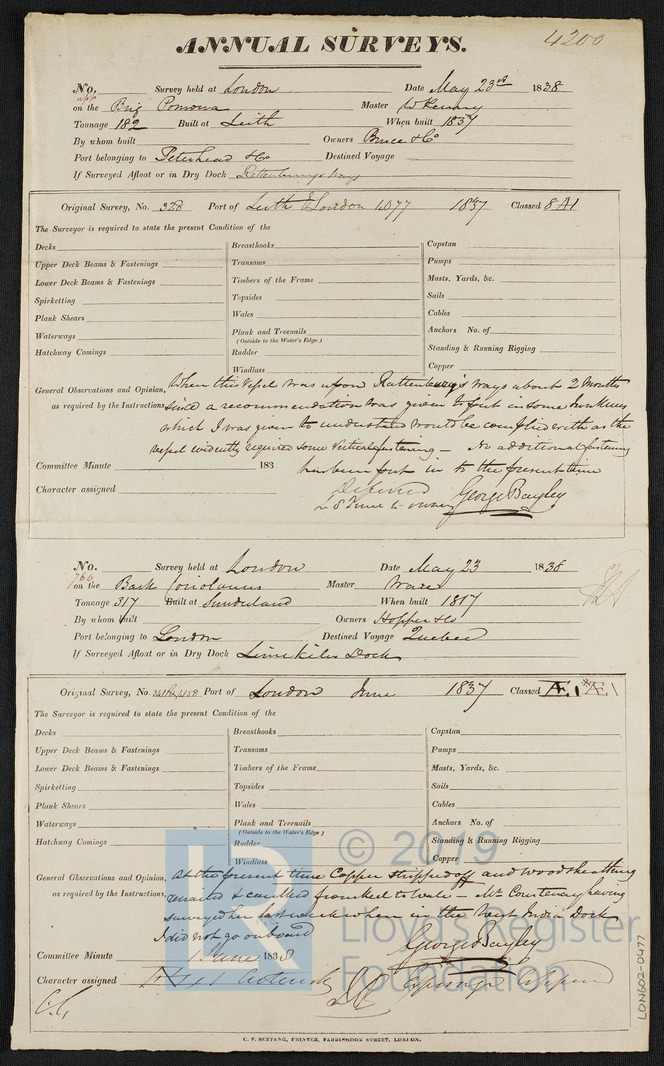 ANNUAL SURVEYS.
4200
No. Survey held at London Date May 23rd 1838
on the Brig Pomona Master
Tonnage 182 Built at Leith When built 1837
By whom built Owners Bruce & Co
Port belonging to Peterhead & Co Destined Voyage
If Surveyed Afloat or in Dry Dock Rattenburys Ways
Original Survey, No. 328 Port of Leith & London 1077 1837 Classed 8 A1
The Surveyor is required to state the present Condition of the
Decks Breasthooks Capstan
Upper Deck Beams & Fastenings Transoms Pumps
Lower Deck Beams & Fastenings Timbers of the Frame Masts, Yards, &c.
Spirketting Topsides Sails
Plank Shears Wales Cables
Waterways Plank and Treenails Anchors No. of
(Outside to the Water's Edge.)
Hatchway Comings Rudder Standing & Running Rigging
Windlass Copper
General Observations and Opinion, When this Vessel was upon Rattenbury's ways about 2 Months
as required by the Instructions, since a recommendation was given to put in some Iron Knees
which I was given to understand would be complied with as the
vessel evidently required some Vertical fastening – No additional fastening
Committee Minute 183 has been put in to the present time
Character assigned Deferred George Bayley
8 June to owner
No. Survey held at London Date May 23 1838
760
on the Bark Coriolanus Master Ware
Tonnage 317 Built at Sunderland When built 1817
By whom built Owners Hopper & Co
Port belonging to London Destined Voyage Quebec
If Surveyed Afloat or in Dry Dock Limekiln Dock
Original Survey, No. Port of London June 1837 Classed Æ 1 *Æ 1
The Surveyor is required to state the present Condition of the
Decks Breasthooks Capstan
Upper Deck Beams & Fastenings Transoms Pumps
Lower Deck Beams & Fastenings Timbers of the Frame Masts, Yards, &c.
Spirketting Topsides Sails
Plank Shears Wales Cables
Waterways Plank and Treenails Anchors No. of
(Outside to the Water's Edge)
Hatchway Comings Rudder Standing & Running Rigging
Windlass Copper
General Observations and Opinion, At the present time Copper stripped off and wood sheathing
as required by the Instructions, & caulked from keel to wale – Mr Courtenay having
surveyed her last week when in the West India Dock
I did not go onboard
George Bayley
Committee Minute 1 June 1838
Character assigned
© 2019
LR
Lloyd's Register
Foundation
LON602-0477
C. F. SEYFANG, PRINTER, FARRINGDON STREET, LONDON.